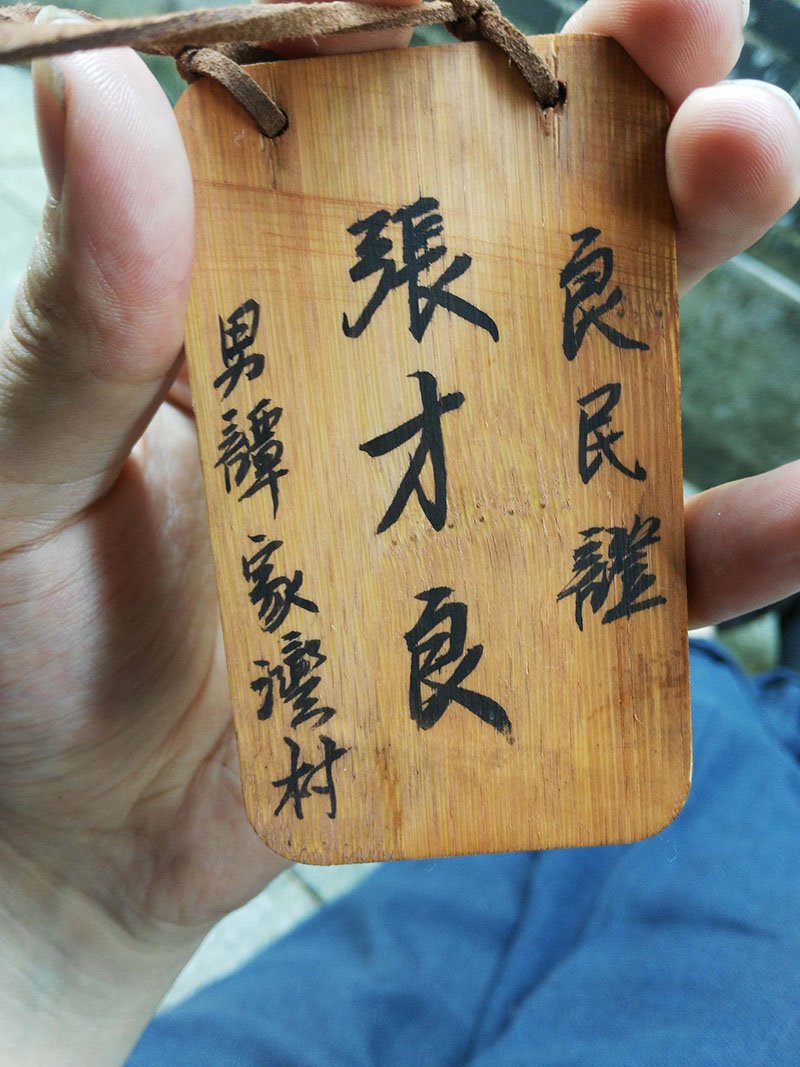 良民證
張才良
男譚家灣村